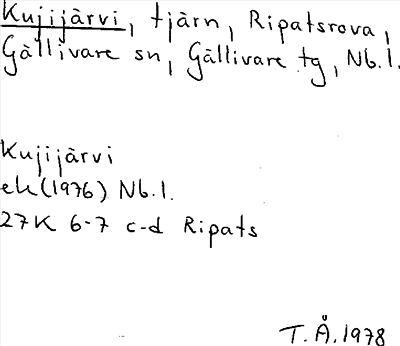 Kujijärvi, tjärn, Ripatsrova,
Gällivare sn, Gällivare tg, Nb.l.
Kujijärvi
ek(1976) Nb.l.
27K 6-7 c-d Ripats
T.Å.1978